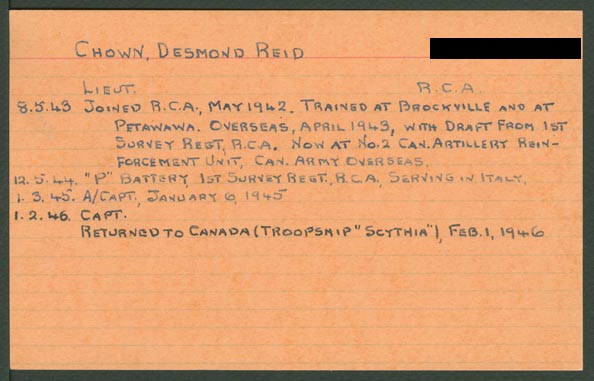 CHOWN, DESMOND REID
LIEUT. R.C.A.
8.5.43 JOINED R.C.A., MAY 1942. TRAINED AT BROCKVILLE AND AT
PETAWAWA. OVERSEAS, APRIL 1943, WITH DRAFT FROM 1ST
SURVEY REGT, R.C.A. NOW AT NO.2 CAN. ARTILLERY REIN-
FORCEMENT UNIT, CAN. ARMY OVERSEAS.
12.5.44. "P" BATTERY, 1ST SURVEY REGT., R.C.A., SERVING IN ITALY.
1.3.45. A/CAPT., JANUARY 6, 1945
1.2.46. CAPT.
RETURNED TO CANADA (TROOPSHIP "SCYTHIA"), FEB. 1, 1946